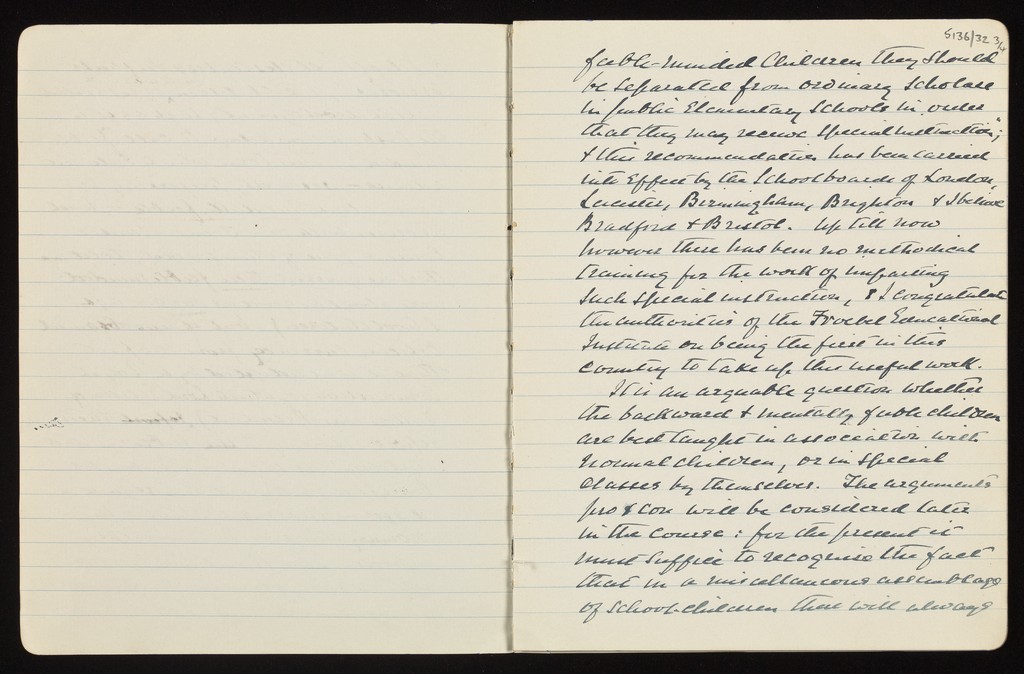 5136/32 3/4
feeble-minded Children they should
be separated from ordinary Scholars
in public Elementary Schools in order
that they may receive Special instruction";
& this recommendation has been carried
into Effect by the School boards of London,
Leicester, Birmingham, Brighton & I believe
Bradford & Bristol. Up till now
however there has been no methodical
training for the work of imparting
such special instruction, & I congratulate
the authorities of the Froebel Educational
Institute on being the first in this
country to take up this useful work.
It is an arguable question whether
the backward & mentally feeble children
are best taught in association with
normal children, or in special
Classes by themselves. The arguments
pro & con will be considered later
in the course: for the present it
must suffice to recognise the fact
that in a miscellaneous assemblage
of School-children there will always